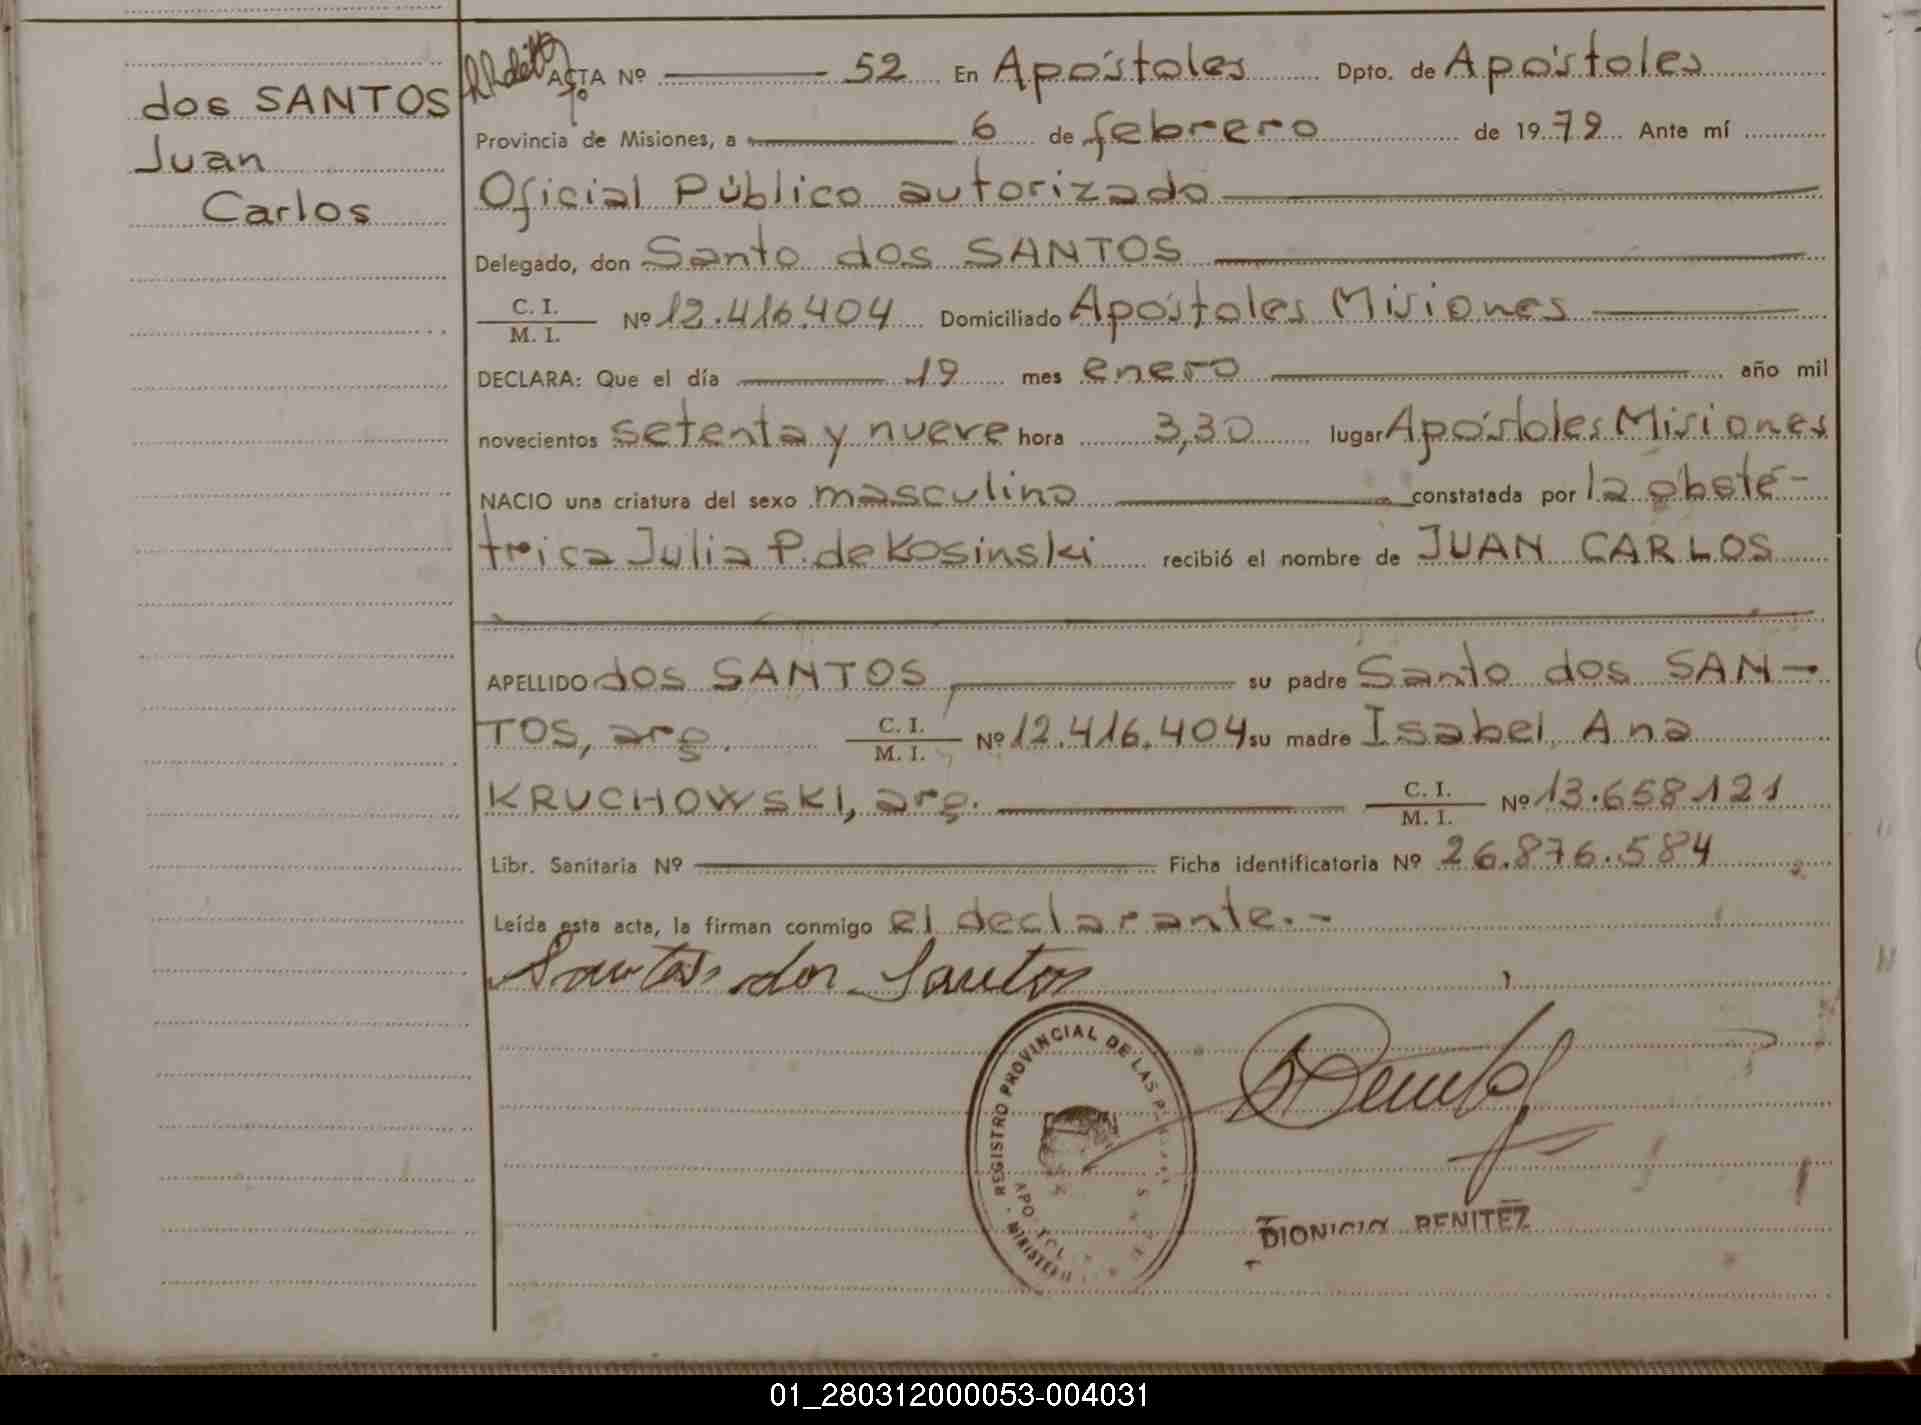 dos SANTOS
Juan
Carlos
ACTA Nº 52 En Apóstoles Dpto. de Apóstoles
Provincia de Misiones, a 6 de febrero de 1979 Ante mí
Oficial Público autorizado
Delegado, don Santo dos SANTOS
C. I.
M. I.
Nº 12.416.404 Domiciliado Apóstoles Misiones
DECLARA: Que el día 19 mes enero año mil
novecientos setenta y nueve hora 3,30 lugar Apóstoles Misiones
NACIO una criatura del sexo masculino constatada por la obsté-
trica Julia P. de Kosinski recibió el nombre de JUAN CARLOS
APELLIDO dos SANTOS su padre Santo dos SAN-
TOS, arg. C. I. M. I. Nº 12.416.404 su madre Isabel Ana
KRUCHOWSKI, arg. C. I. M. I. Nº 13.658.121
Libr. Sanitaria Nº Ficha identificatoria Nº 26.876.584
Leída esta acta, la firman conmigo el declarante.-
Santos dos Santos
REGISTRO PROVINCIAL DE LAS
DIONICIO BENITEZ
01_280312000053-004031